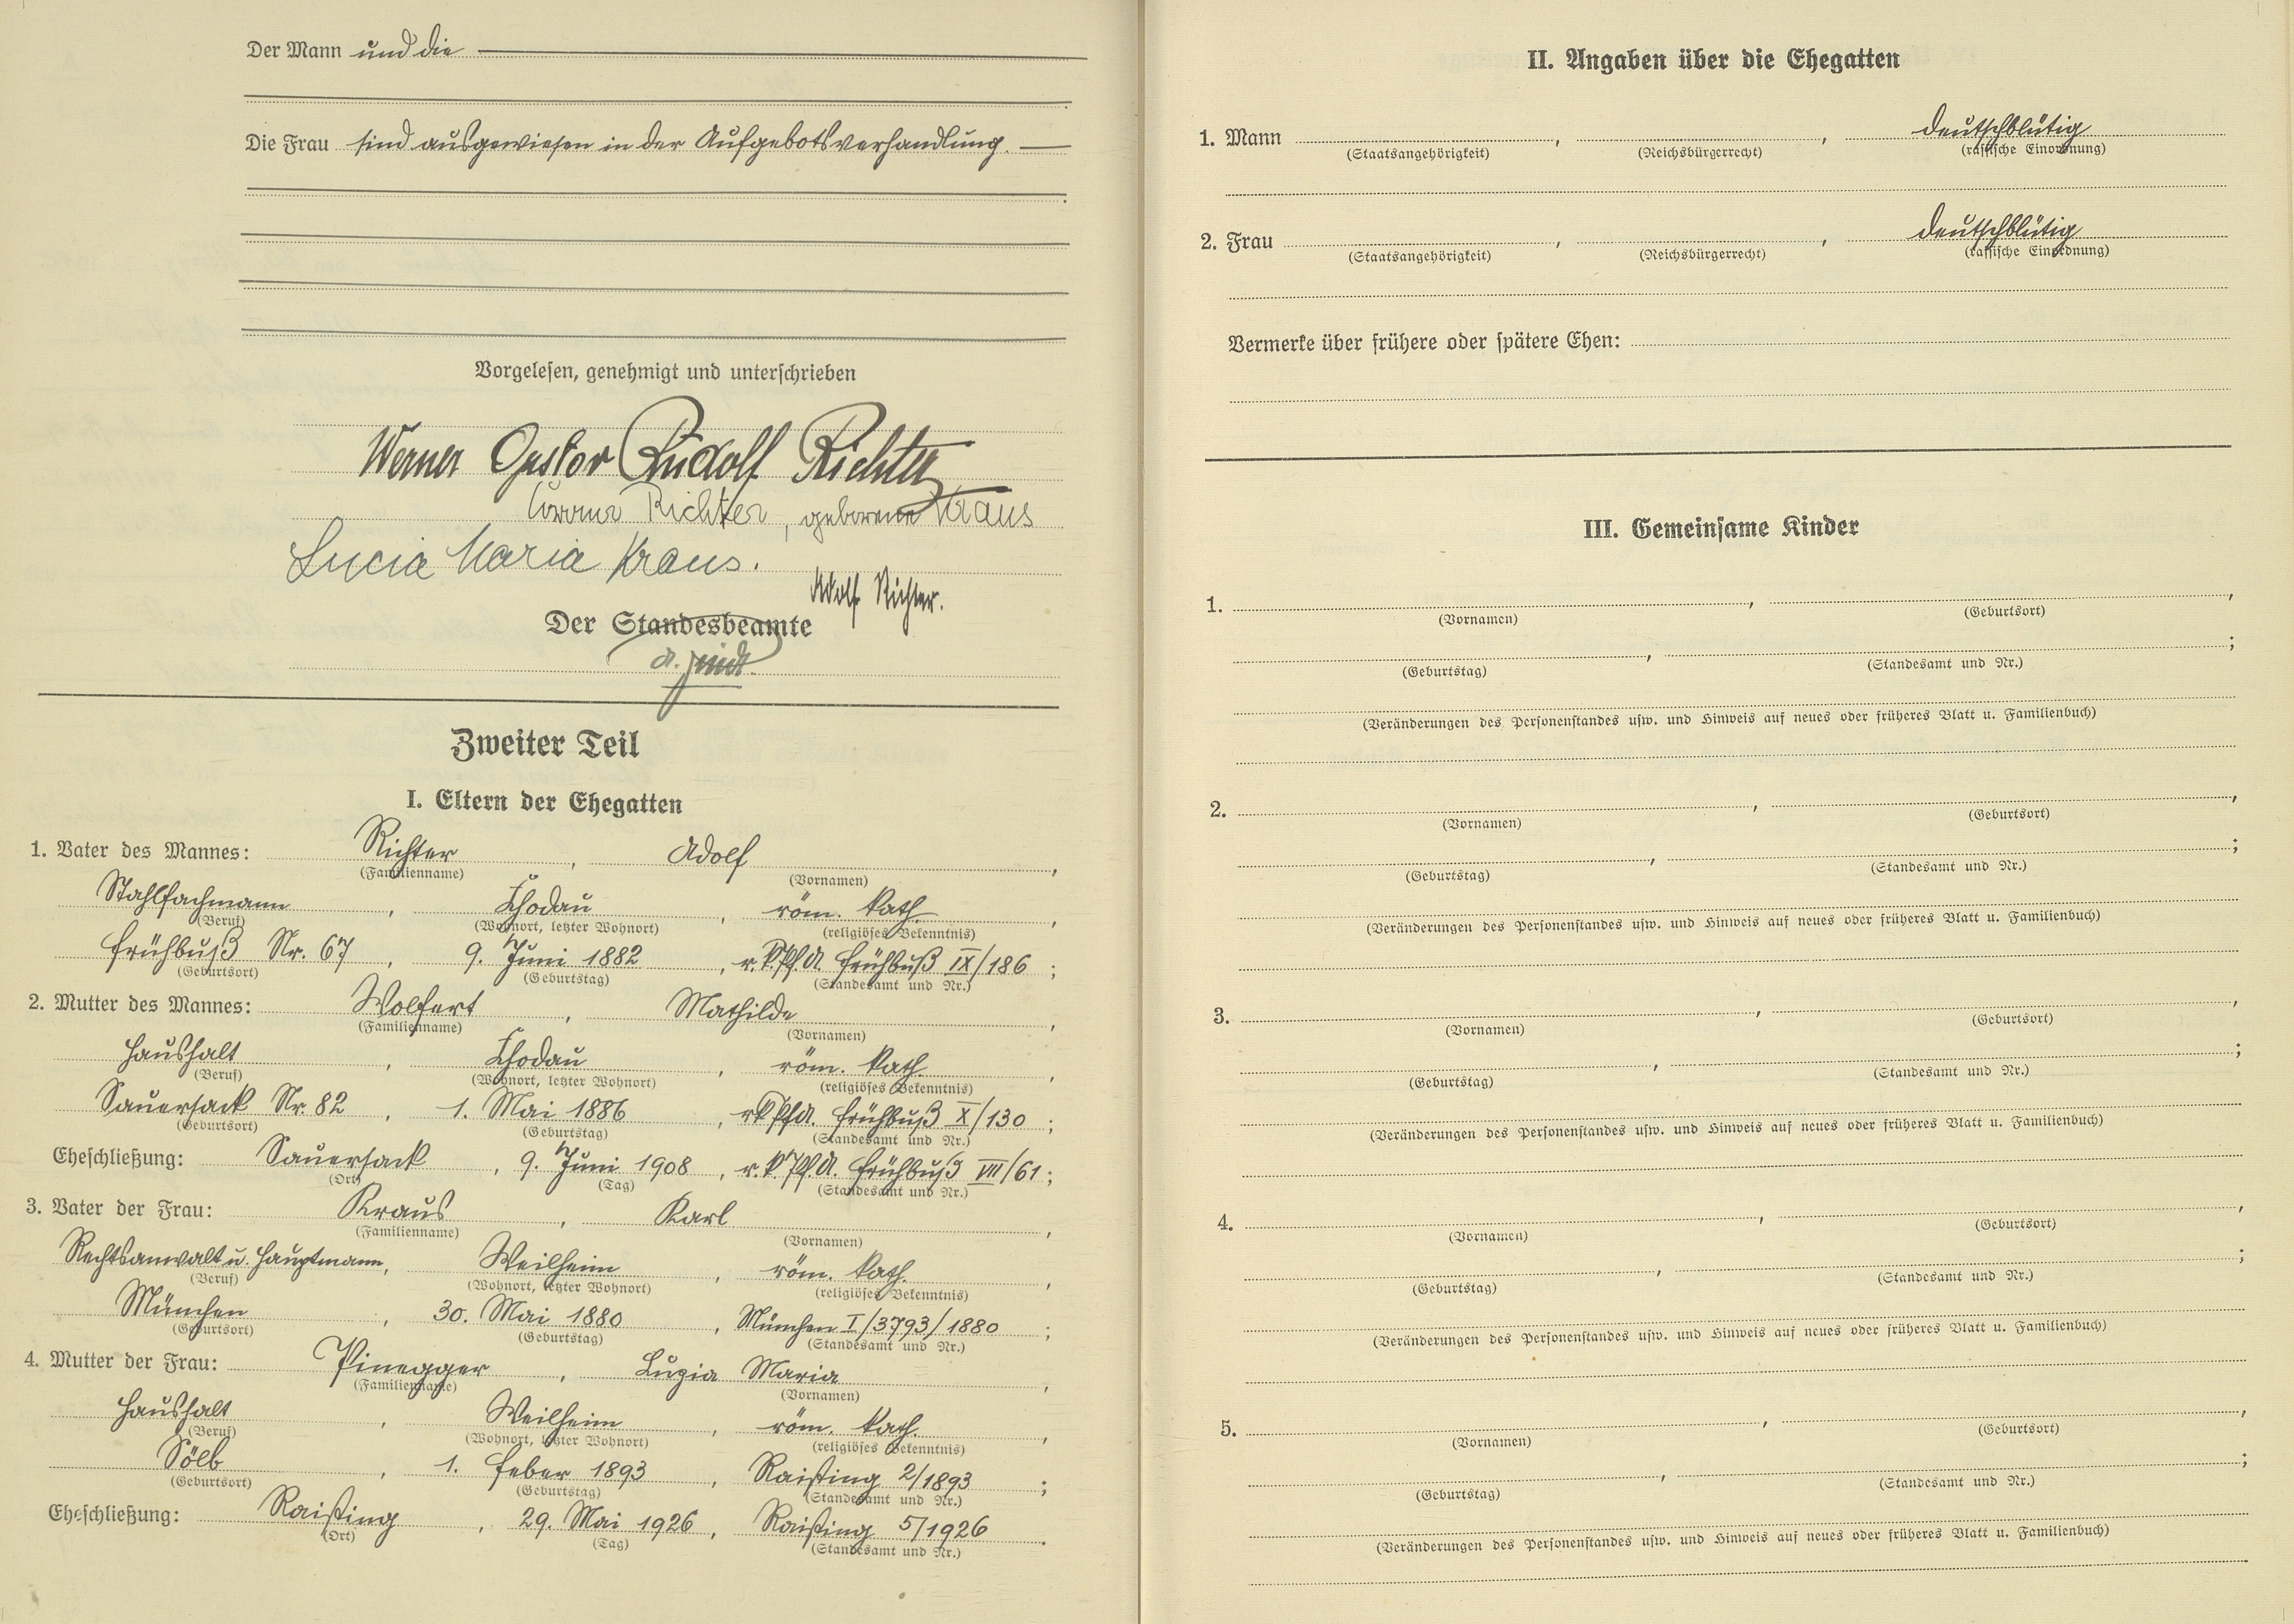 Der Mann und die
Die Frau sind ausgewiesen in der Aufgebotsverhandlung.
Vorgelesen, genehmigt und unterschrieben
Werner Gustav Rudolf Richter
Richter, geborene Kraus
Lucia Maria Kraus.
Adolf Richter.
Der Standesbeamte
Zweiter Teil
I. Eltern der Ehegatten
1. Vater des Mannes: Richter, Adolf,
(Familienname) (Vornamen)
Stahlfachmann, Chodau, röm. kath.,
(Beruf) (Wohnort, letzter Wohnort) (religiöses Bekenntnis)
Frühbuß Nr. 67, 9. Juni 1882, r.k.Pf.A. Frühbuß IX/186;
(Geburtsort) (Geburtstag) (Standesamt und Nr.)
2. Mutter des Mannes: Wolfert, Mathilde,
(Familienname) (Vornamen)
Haushalt, Chodau, röm. kath.,
(Beruf) (Wohnort, letzter Wohnort) (religiöses Bekenntnis)
Sauersack Nr. 82, 1. Mai 1886, r.k.Pf.A. Frühbuß X/130;
(Geburtsort) (Geburtstag) (Standesamt und Nr.)
Eheschließung: Sauersack, 9. Juni 1908, r.k.Pf.A. Frühbuß VIII/61;
(Ort) (Tag) (Standesamt und Nr.)
3. Vater der Frau: Kraus, Karl,
(Familienname) (Vornamen)
Rechtsanwalt u. Hauptmann, Weilheim, röm. kath.,
(Beruf) (Wohnort, letzter Wohnort) (religiöses Bekenntnis)
München, 30. Mai 1880, München I/3793/1880;
(Geburtsort) (Geburtstag) (Standesamt und Nr.)
4. Mutter der Frau: Pinegger, Luzia Maria,
(Familienname) (Vornamen)
Haushalt, Weilheim, röm. kath.,
(Beruf) (Wohnort, letzter Wohnort) (religiöses Bekenntnis)
Sölb, 1. Feber 1893, Raisting 2/1893;
(Geburtsort) (Geburtstag) (Standesamt und Nr.)
Eheschließung: Raisting, 29. Mai 1926, Raisting 5/1926.
(Ort) (Tag) (Standesamt und Nr.)
II. Angaben über die Ehegatten
1. Mann , , deutschblütig
(Staatsangehörigkeit) (Reichsbürgerrecht) (rassische Einordnung)
2. Frau , , deutschblütig
(Staatsangehörigkeit) (Reichsbürgerrecht) (rassische Einordnung)
Vermerke über frühere oder spätere Ehen:
III. Gemeinsame Kinder
1. , ,
(Vornamen) (Geburtsort)
, ;
(Geburtstag) (Standesamt und Nr.)
(Veränderungen des Personenstandes usw. und Hinweis auf neues oder früheres Blatt u. Familienbuch)
2. , ,
(Vornamen) (Geburtsort)
, ;
(Geburtstag) (Standesamt und Nr.)
(Veränderungen des Personenstandes usw. und Hinweis auf neues oder früheres Blatt u. Familienbuch)
3. , ,
(Vornamen) (Geburtsort)
, ;
(Geburtstag) (Standesamt und Nr.)
(Veränderungen des Personenstandes usw. und Hinweis auf neues oder früheres Blatt u. Familienbuch)
4. , ,
(Vornamen) (Geburtsort)
, ;
(Geburtstag) (Standesamt und Nr.)
(Veränderungen des Personenstandes usw. und Hinweis auf neues oder früheres Blatt u. Familienbuch)
5. , ,
(Vornamen) (Geburtsort)
, ;
(Geburtstag) (Standesamt und Nr.)
(Veränderungen des Personenstandes usw. und Hinweis auf neues oder früheres Blatt u. Familienbuch)